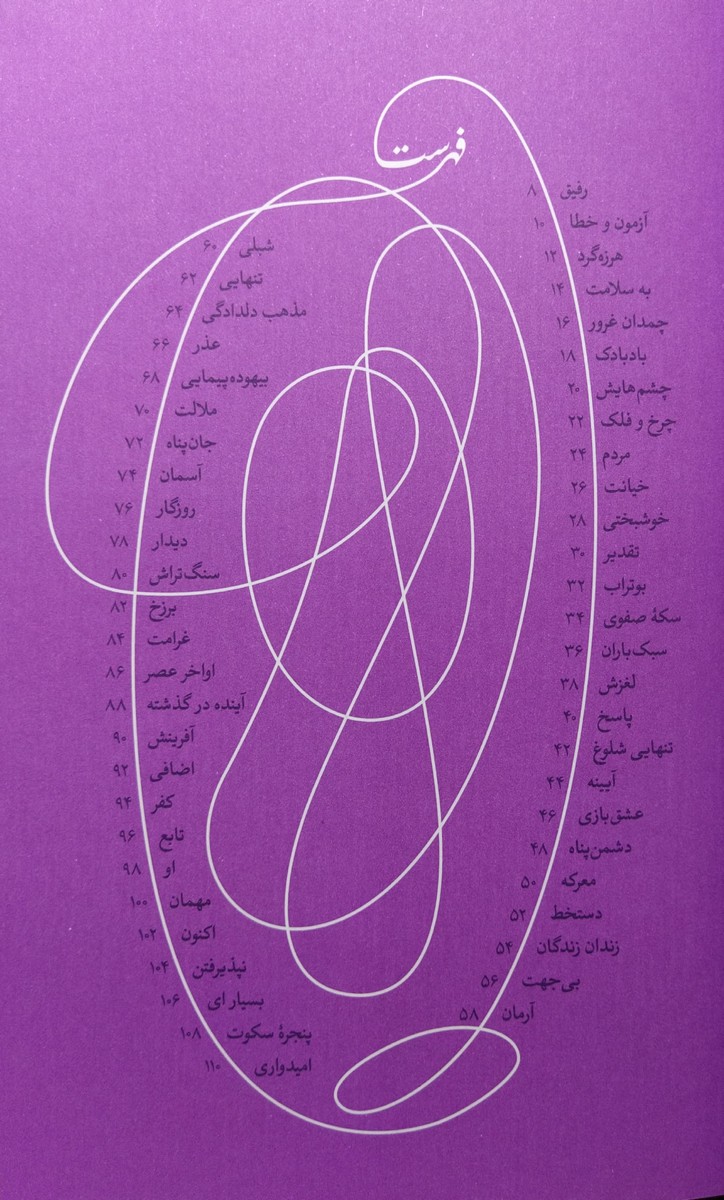 فهرست
رفیق ۸
آزمون و خطا ۱۰
هرزه‌گرد ۱۲
به سلامت ۱۴
چمدان غرور ۱۶
بادبادک ۱۸
چشم‌هایش ۲۰
چرخ و فلک ۲۲
مردم ۲۴
خیانت ۲۶
خوشبختی ۲۸
تقدیر ۳۰
بوتراب ۳۲
سکهٔ صفوی ۳۴
سبک‌باران ۳۶
لغزش ۳۸
پاسخ ۴۰
تنهایی شلوغ ۴۲
آیینه ۴۴
عشق‌بازی ۴۶
دشمن‌پناه ۴۸
معرکه ۵۰
دستخط ۵۲
زندان زندگان ۵۴
بی‌جهت ۵۶
آرمان ۵۸
شبلی ۶۰
تنهایی ۶۲
مذهب دلدادگی ۶۴
عذر ۶۶
بیهوده‌پیمایی ۶۸
ملالت ۷۰
جان‌پناه ۷۲
آسمان ۷۴
روزگار ۷۶
دیدار ۷۸
سنگ‌تراش ۸۰
برزخ ۸۲
غرامت ۸۴
اواخر عصر ۸۶
آینده در گذشته ۸۸
آفرینش ۹۰
اضافی ۹۲
کفر ۹۴
تابع ۹۶
او ۹۸
مهمان ۱۰۰
اکنون ۱۰۲
نپذیرفتن ۱۰۴
بسیار ای ۱۰۶
پنجرهٔ سکوت ۱۰۸
امیدواری ۱۱۰